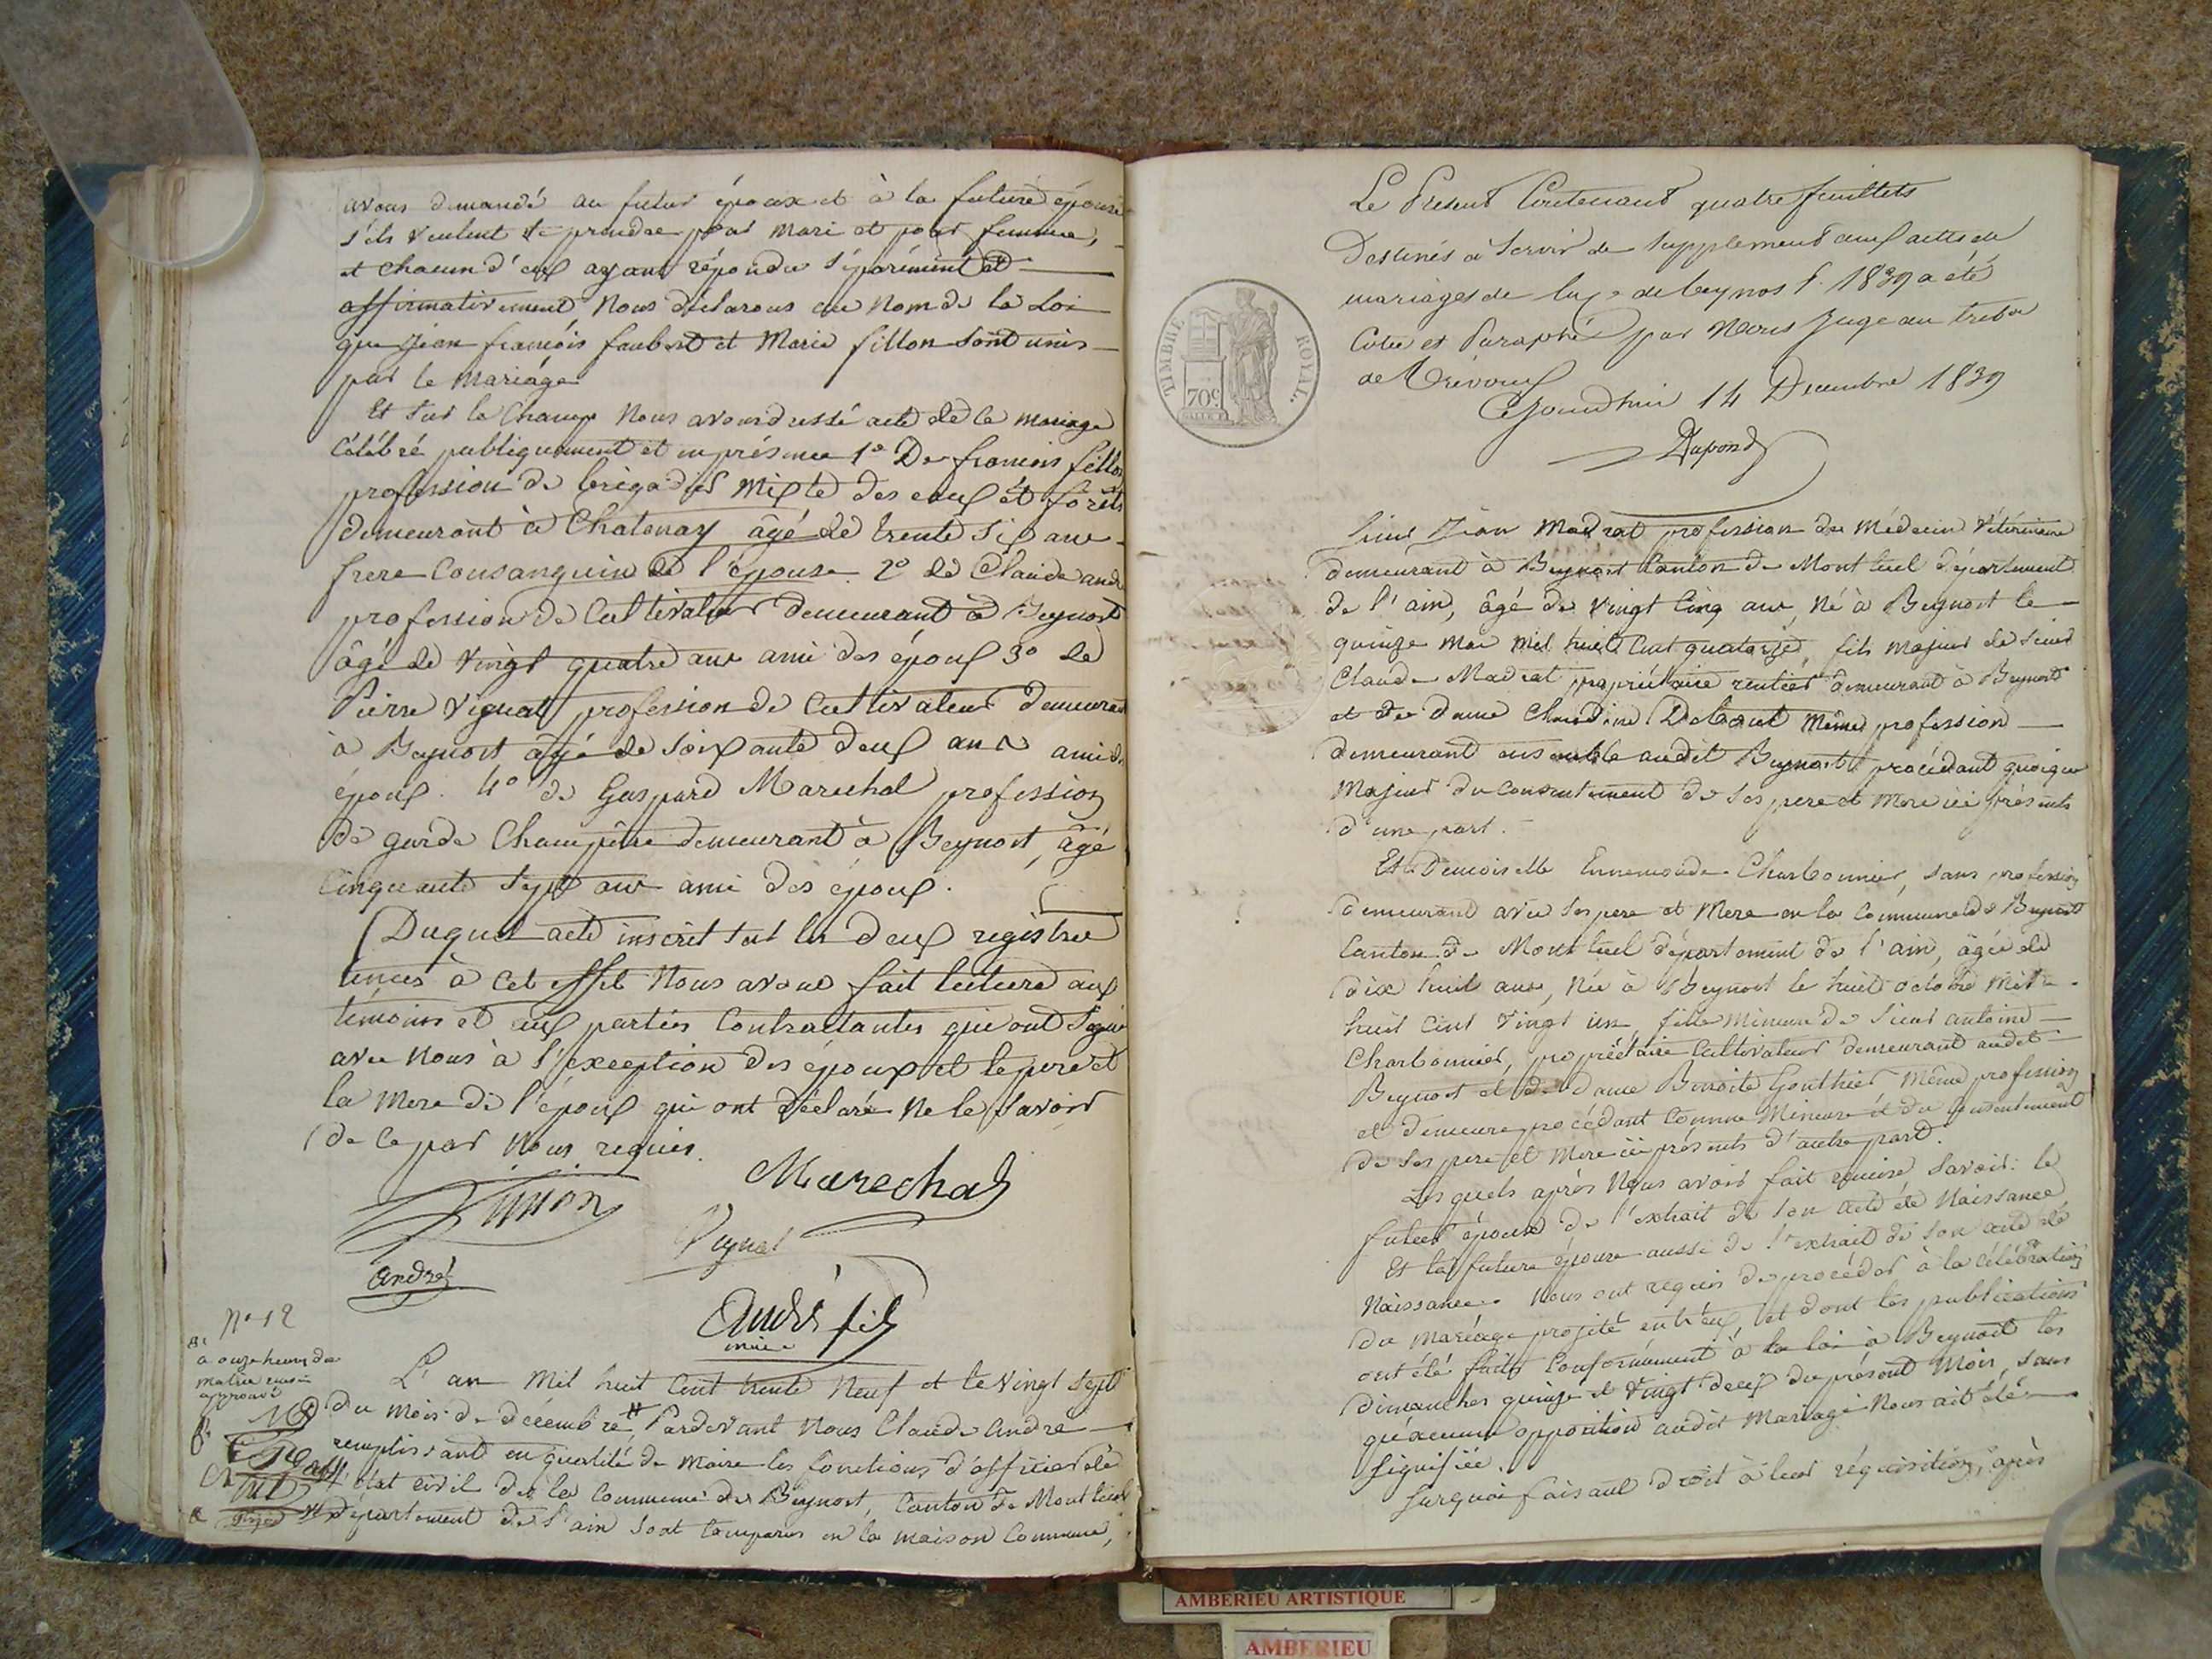 avons demandé au futur époux et à la future épouse
s'ils veulent se prendre pour mari et pour femme,
et chacun d'eux ayant répondu séparément et
affirmativement Nous déclarons au Nom de la Loi
que Jean françois faubert et Marie fillon sont unis
par le mariage
Et sur le Champ Nous avons dressé acte de ce mariage
Célébré publiquement et en présence 1° De francois fillon
profession de brigadier mixte des eaux et forêts
demeurant à Chatenay âgé de trente six ans
frere Consanguin de l'épouse 2° de Claude andré
profession de Cultivateur demeurant à Beynost
âgé de vingt quatre ans ami des époux 3° de
Pierre Vignat profession de Cultivateur demeurant
à Beynost âgé de soixante deux ans ami des
époux. 4° de Gaspard Marechal profession
de garde Champêtre demeurant à Beynost, âgé
Cinquante sept ans ami des époux.
Duquel acte inscrit sur les deux registres
tenus à cet effet Nous avons fait lecture aux
témoins et aux parties Contractantes qui ont signé
avec Nous à l'exception des époux et le pere et
la Mere de l'époux qui ont déclaré Ne le savoir
de ce par Nous requis.
Marechal
Vignat
André
André fils
maire
N° 12
à onze heures du
matin
approuvé
L'an Mil huit Cent trente Neuf et le Vingt Sept
du Mois de décembre, Pardevant Nous Claude André
remplissant en qualité de Maire les fonctions d'officier de
l'état civil de la Commune de Beynost, Canton de Montluel
département de l'ain sont Comparus en la maison Commune,
Le Présent Contenant quatre feuillets
Destinés à Servir de Supplément aux actes de
mariages de la Ce de beynost pr 1839 a été
Coté et Paraphé par Nous Juge au trib al
de Trévoux
Cejourdhui 14 Décembre 1839
Dupond
TIMBRE ROYAL.
70c
Sieur Jean Madrat profession de Médecin Vétérinaire
demeurant à Beynost Canton de Montluel département
de l'ain, âgé de Vingt Cinq ans, Né à Beynost le
quinze Mai Mil huit Cent quatorze, fils Majeur de Sieur
Claude Madrat propriétaire rentier demeurant à Beynost
et de dame Claudine Même profession
demeurant ensemble audit Beynost procédant quoique
Majeur du Consentement de ses pere et Mere ici présents
d'une part.
Et Demoiselle Ennemonde Charbonnier, sans profession
demeurant avec ses pere et Mere en la Commune de Beynost
Canton de Montluel département de l'ain, âgée de
dix huit ans, Née à Beynost le huit octobre Mil
huit Cent Vingt un, fille Mineure de Sieur antoine
Charbonnier, propriétaire Cultivateur demeurant audit
Beynost et de dame Benoite Gonthier Même profession
et demeure procédant Comme Mineure et du Consentement
de ses pere et Mere ici présents d'autre part.
Les quels après Nous avoir fait remise Savoir: le
futur époux de l'extrait de son acte de Naissance
Et la future épouse aussi de l'extrait de son acte de
Naissance. Nous ont requis de procéder à la Célébration
du Mariage projeté entr'eux, et dont les publications
ont été faites Conformément à la loi à Beynost les
dimanches quinze et Vingt deux du présent Mois, sans
qu'aucune opposition audit Mariage Nous ait été
Signifiée.
Surquoi faisant droit à leur réquisition, après
AMBERIEU ARTISTIQUE
AMBERIEU